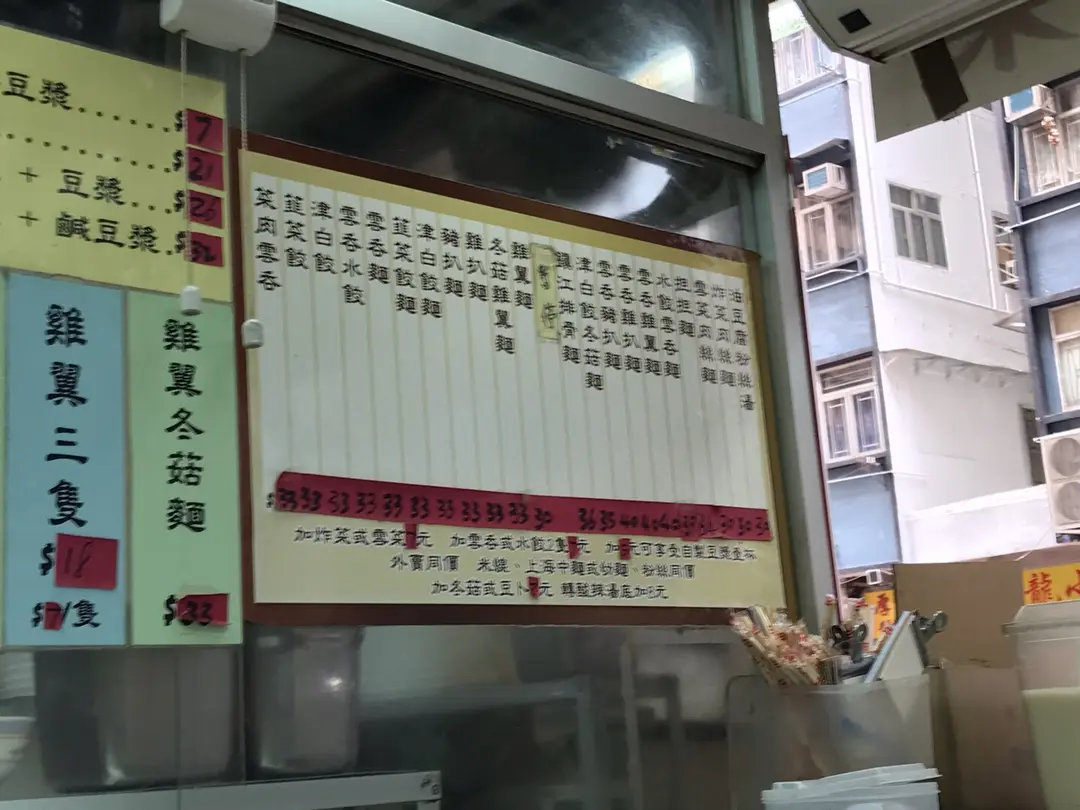 豆漿......$7
......$21
+ 豆漿...$26
+ 鹹豆漿.$32
雞翼三隻
$18
$7/隻
雞翼冬菇麵
$33
菜肉雲吞
韮菜餃
津白餃
雲吞水餃
雲吞麵
韮菜餃麵
津白餃麵
豬扒麵
雞扒麵
冬菇雞翼麵
雞翼麵
津白餃冬菇麵
雲吞豬扒麵
雲吞雞扒麵
雲吞雞翼麵
水餃雲吞麵
担担麵
雪菜肉絲麵
炸菜肉絲麵
油豆腐粉絲湯
$33 33 33 33 33 33 33 33 33 33 30 36 35 40 40 40
加炸菜或雲菜 元 加雲吞或水餃2隻 元 加 元可享受自製豆漿壹杯
外賣同價 米線、上海中麵或幼麵、粉絲同價
加冬菇或豆卜 元 轉酸辣湯底加8元
龍